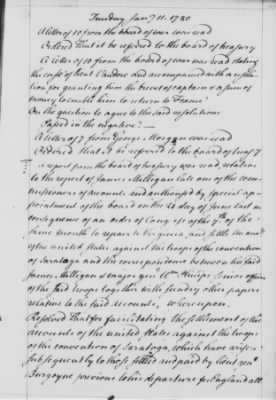 Tuesday Jany 11. 1780
A letter of 10 from the board of war was read
Ordered That it be referred to the board of treasury
A letter of 10 from the board of war was read stating
the case of accompanied with a resolu
tion for granting him the brevet of captain & a sum of
money to enable him to return to France
On the question to agree to the said resolution
Passed in the negative
A letter of 7 from George Morgan was read
Ordered That it be referred to the board of
A report from the board of treasury was read, relative
to the report of James Milligan late one of the com
missioners of accounts and authorised by special ap
pointment of the board on the day of June last in
consequence of an order of Congress of the 7th of the
same month to repair to Virginia and settle the accts
of the united States against the troops of the convention
of Saratoga and the correspondence between the said
James Milligan & major genl Wm Philips Senior officer
of the said troops together with sundry other papers
relative to the said accounts, Whereupon
Resolved That for facilitating the settlement of the
accounts of the united States against the troops
of the convention of Saratoga, which have arisen
subsequently to those settled and paid by lieut. genl
Burgoyne previous to his departure for England all